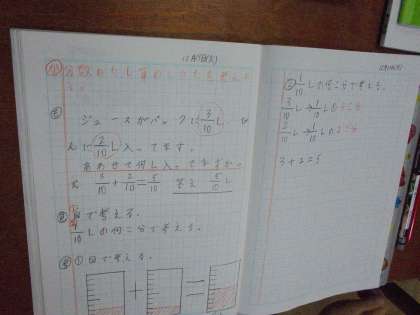 12月18日(火)
め 分数のたし算のしかたを考えよう。
も ジュースがパックに3/10L、びんに2/10L入ってます。
あわせて何L入ってますか。
式 3/10+2/10=5/10 答え 5/10L
図で考える。
1/10Lの何こ分で考える。
①図で考える。
+ =
② 1/10Lの何こ分で考える。
3/10L→1/10Lの3こ分
2/10L→1/10Lの2こ分
3+2=5